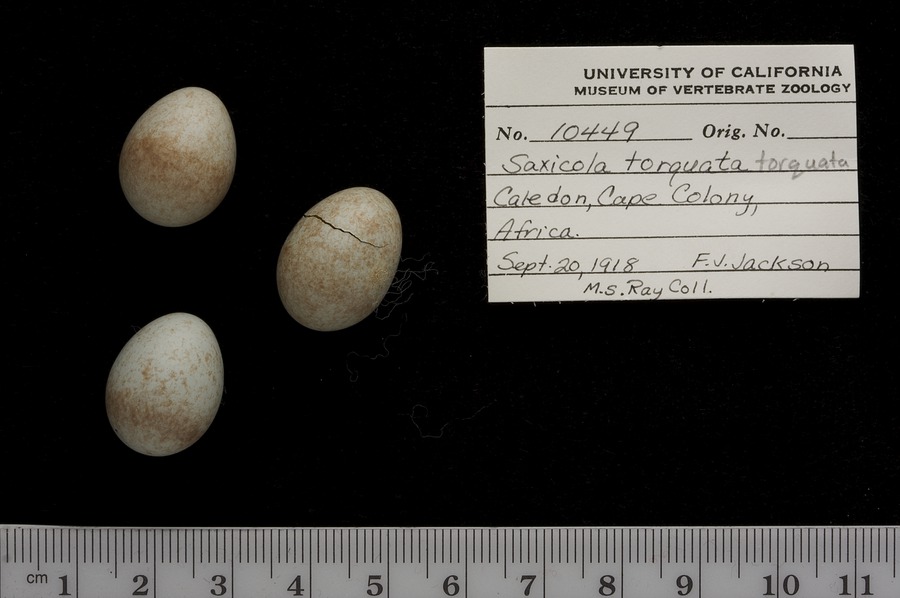 UNIVERSITY OF CALIFORNIA
MUSEUM OF VERTEBRATE ZOOLOGY
No. 10449 Orig. No.
Saxicola torquata torquata
Caledon, Cape Colony,
Africa.
Sept. 20, 1918 F.J. Jackson
M.S. Ray Coll.
cm 1 2 3 4 5 6 7 8 9 10 11